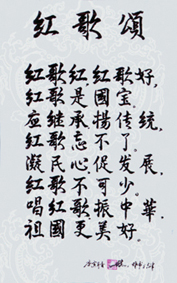 红歌颂
红歌红,红歌好,
红歌是国宝。
应继承,扬传统,
红歌忘不了。
凝民心,促发展,
红歌不可少。
唱红歌,振中华,
祖国更美好。